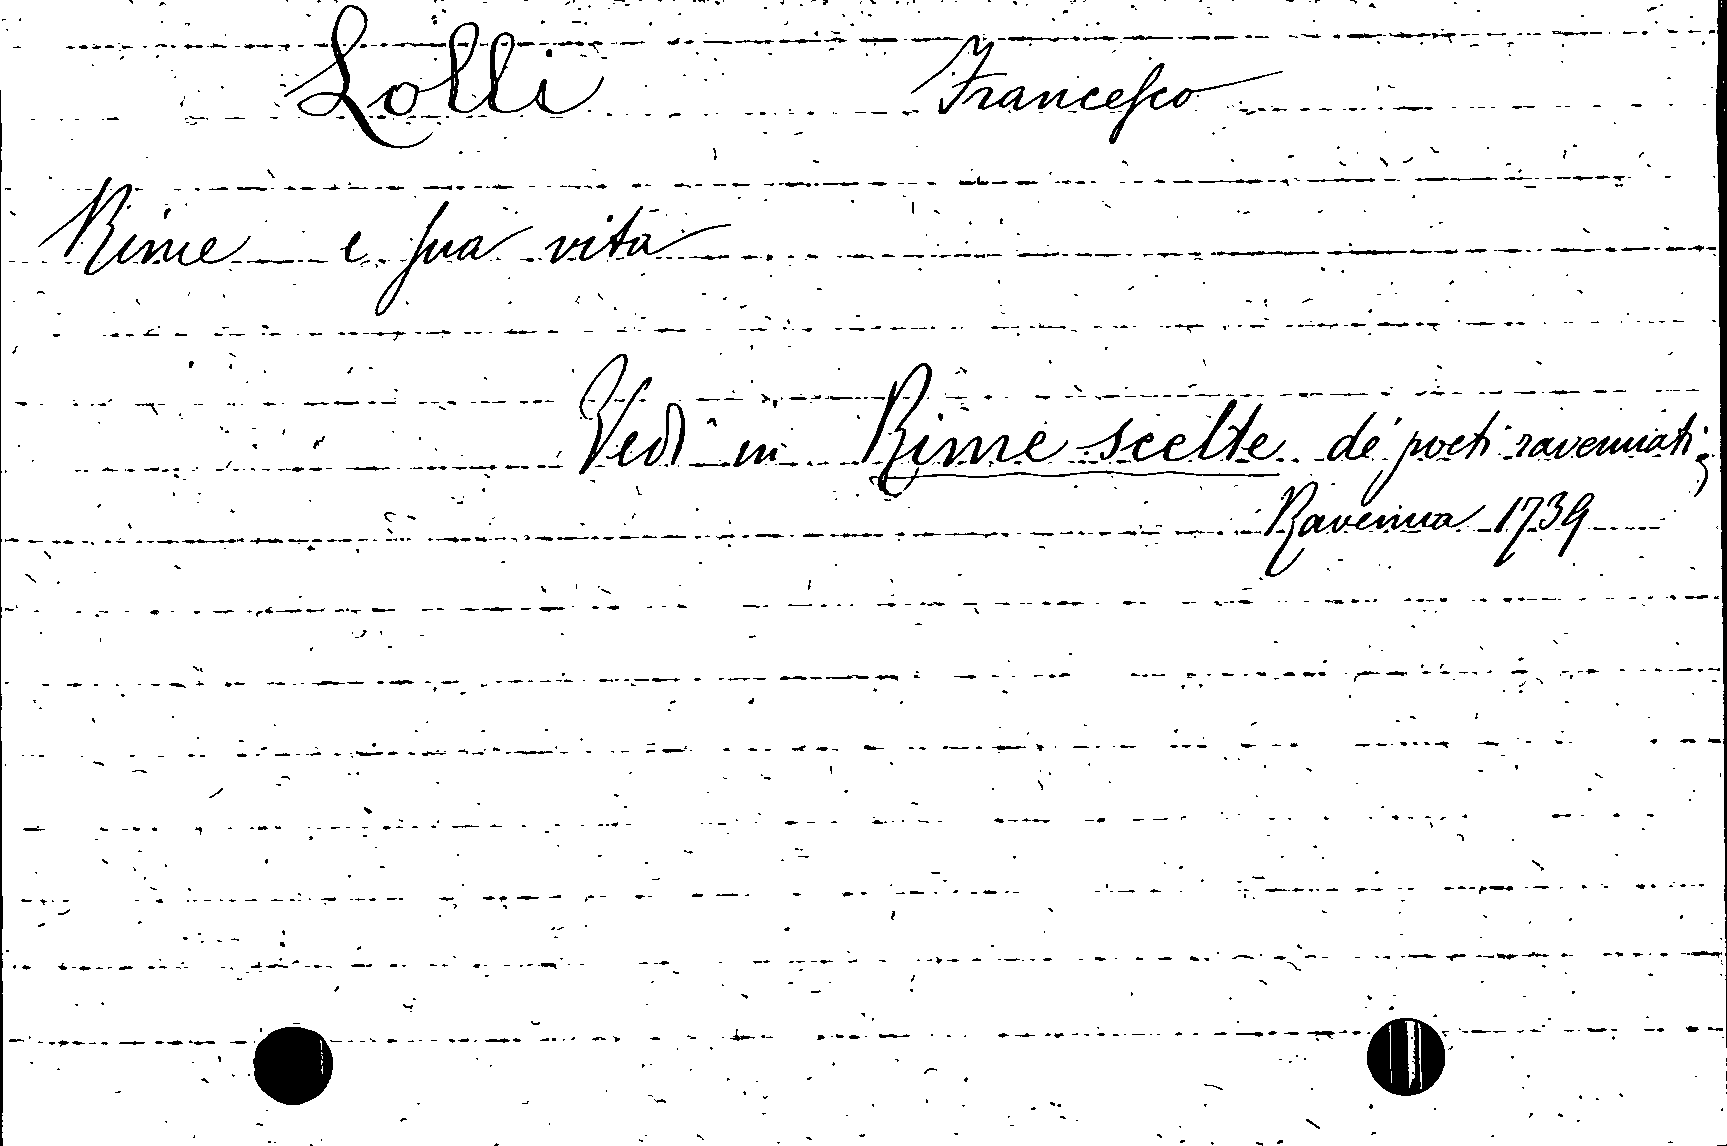 Lolli Francesco
Rime e sua vita
Vedi in Rime scelte de' poeti ravennati;
Ravenna 1739